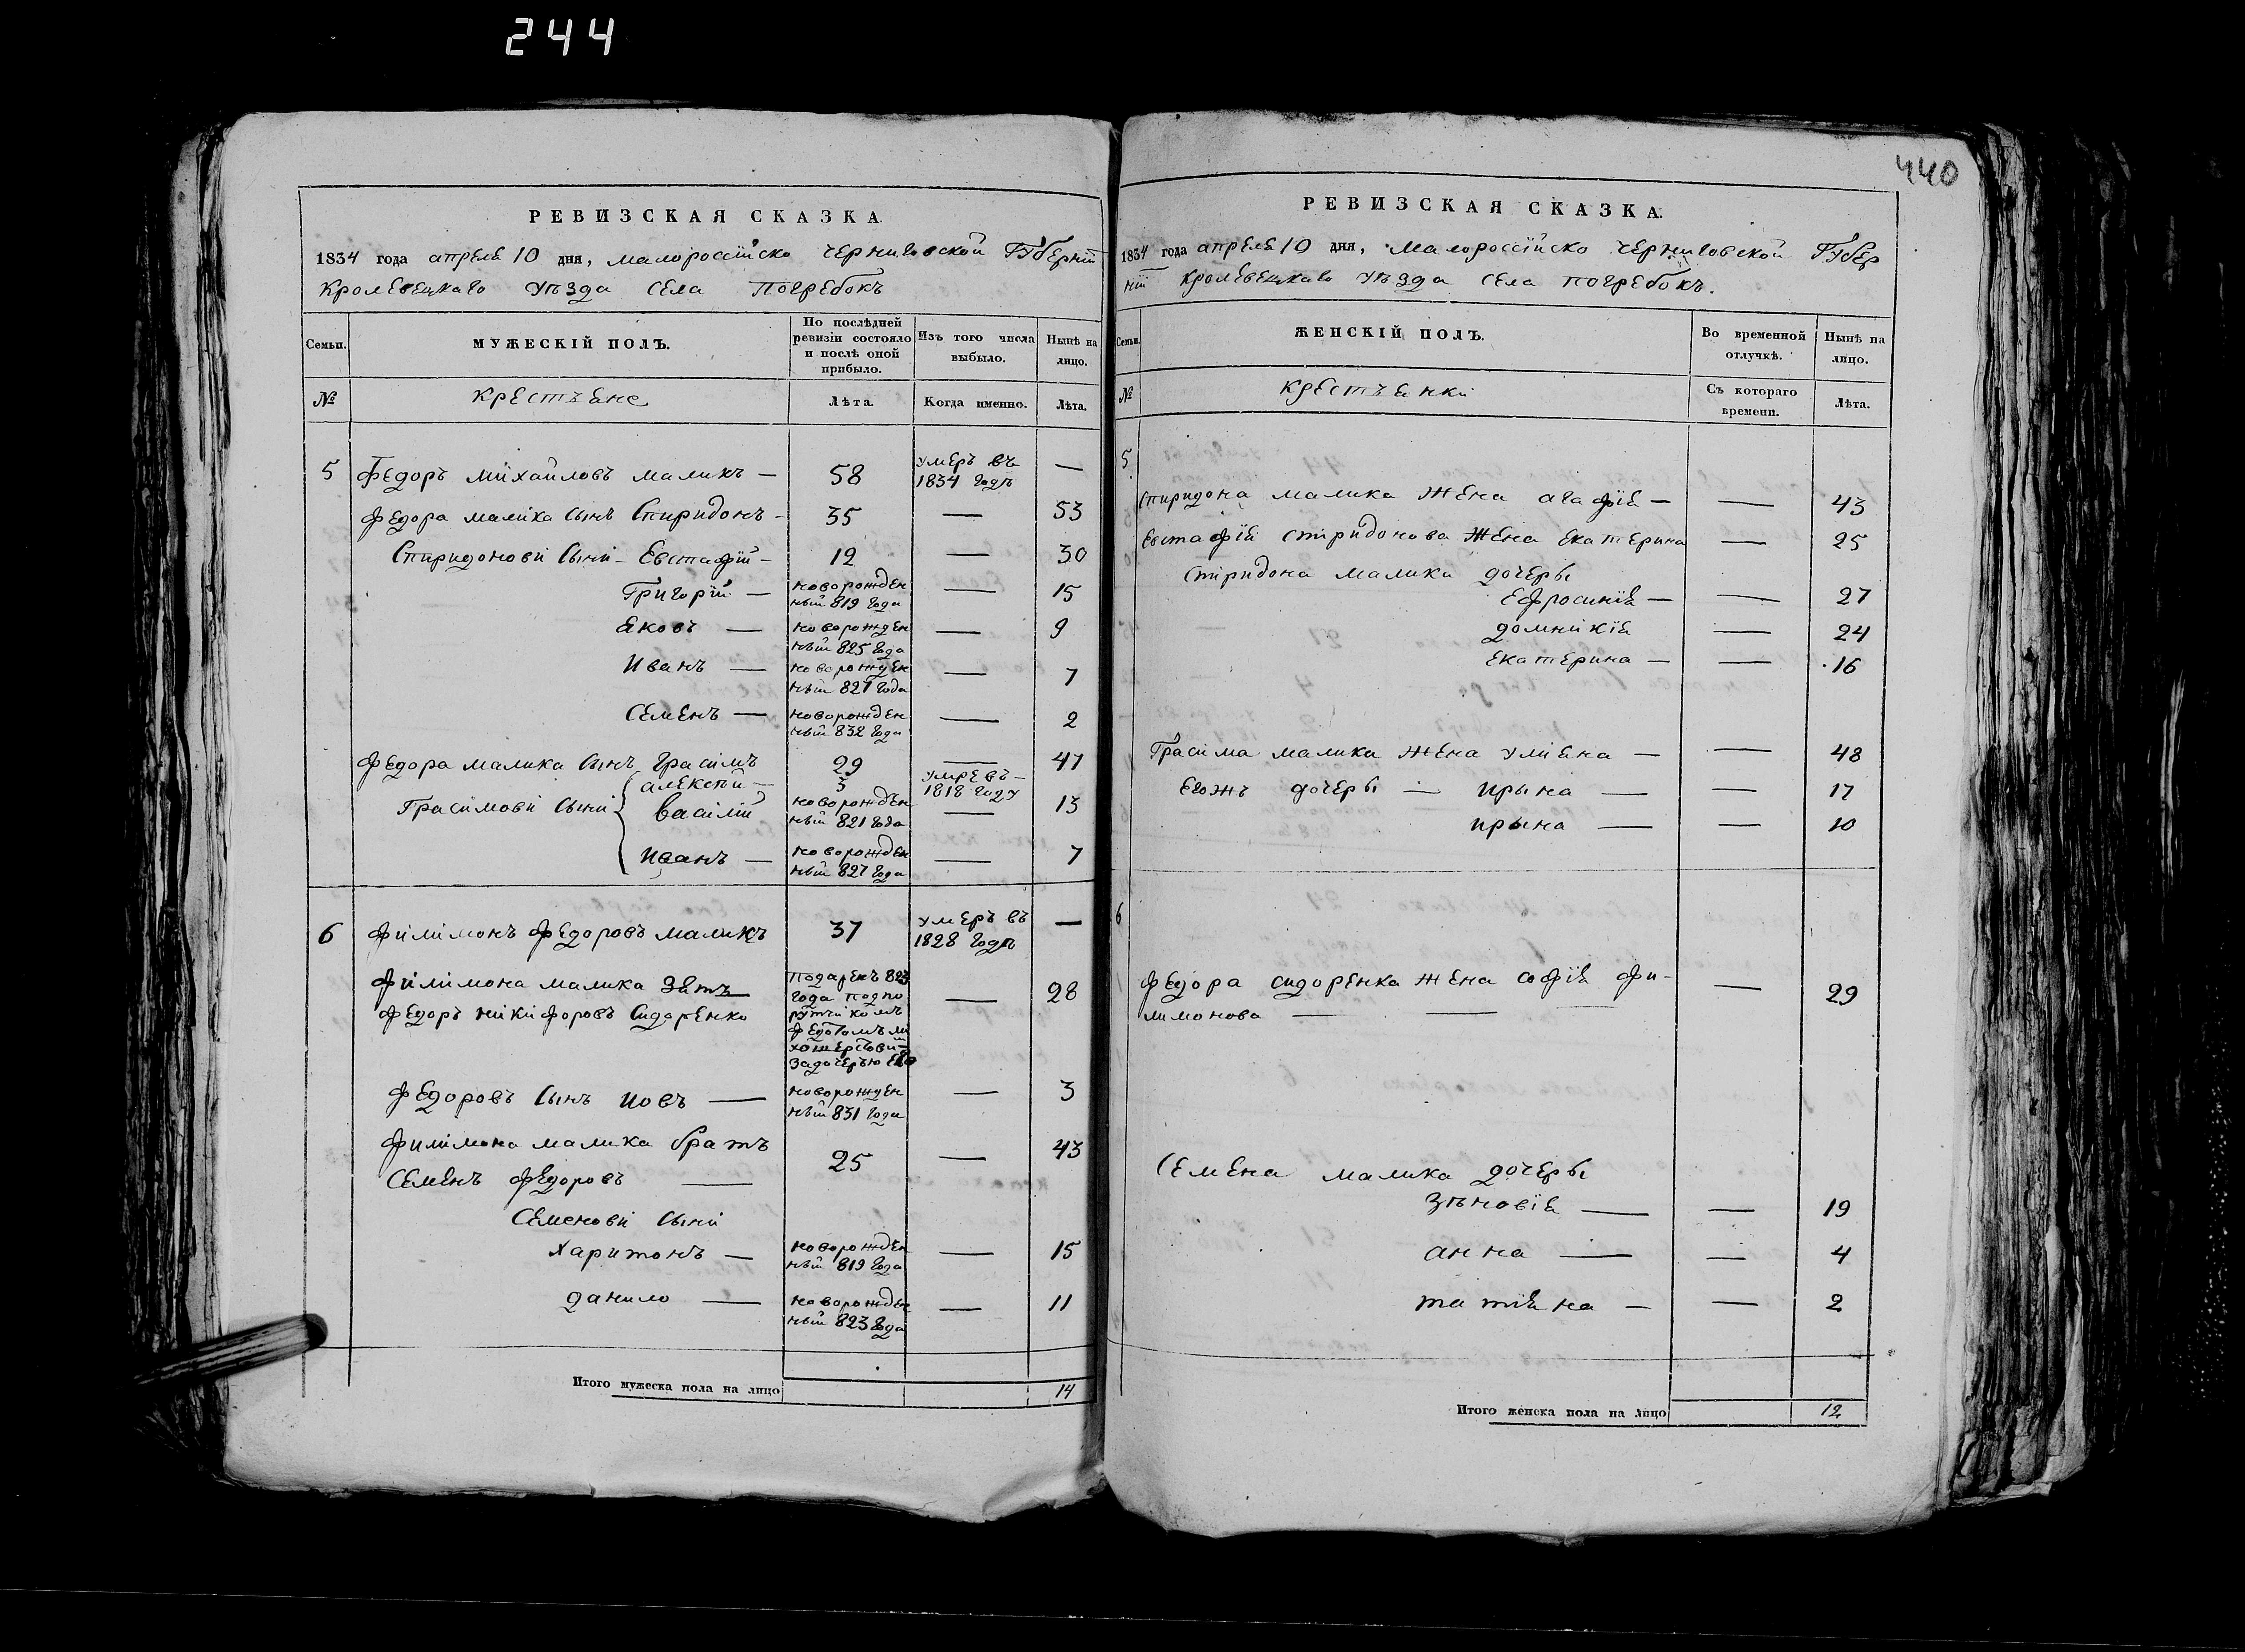 244
РЕВИЗСКАЯ СКАЗКА.
1834 года апреля 10 дня, малороссійско черниговской Губерніи
кролевецкаго уѣзда села Погребокъ
Семьи.
МУЖЕСКІЙ ПОЛЪ.
По послѣдней ревизіи состояло и послѣ оной прибыло.
Изъ того числа выбыло.
Нынѣ на лицо.
№
крестъяне
Лѣта.
Когда именно.
Лѣта.
5 Федоръ міхайловъ маликъ — 58 умеръ въ 1834 годѣ —
федора маліка сынъ Спиридонъ - 35 — 53
Спиридонови Сыни - Евстафій - 12 — 30
Григорій — новорожденный 819 года — 15
яковъ — новорожденный 825 года — 9
Иванъ — новорожденный 827 года — 7
Семенъ — новорожденный 832 года — 2
федора малика сынъ грасімъ 29 — 47
Грасімові сыні
алексѣй — 3 умре въ 1818 году
васілій новорожденный 821 года — 13
иванъ — новорожденный 827 года — 7
6 філімонъ федоровъ маликъ 37 умеръ въ 1828 годѣ —
філімона малика зять
федоръ нікіфоровъ Сидоренко
подаренъ 823
года подпо
ручикомъ
за дочерью его
— 28
федоровъ сынъ иовъ — новорожденный 831 года — 3
филімона малика братъ
Семенъ федоровъ — 25 — 43
Семенови сыни
Харитонъ — новорожденный 819 года — 15
данило — новорожденный 823 года — 11
Итого мужеска пола на лицо 14
440
РЕВИЗСКАЯ СКАЗКА.
1834 года апреля 10 дня, Малороссійско черниговской Губер
ніи кролевецкаго уѣзда села погребокъ.
Семьи.
ЖЕНСКІЙ ПОЛЪ.
Во временной отлучкѣ.
Нынѣ на лицо.
№
крестъянки
Съ котораго времени.
Лѣта.
5
Спиридона малика жена агафія — — 43
Евстафія спірідонова жена екатерина — 25
Спірідона малика дочеры
Ефросинія — — 27
домникія — 24
екатерина — — 16
Грасіма малика жена уліяна — — 48
Егожъ дочеры — ирына — — 17
ирына — — 10
6
федора сидоренка жена софія фи-
лимонова — — — — 29
Семена малика дочеры
зѣновія — — 19
анна — — 4
татіяна — — 2
Итого женска пола на лицо 12